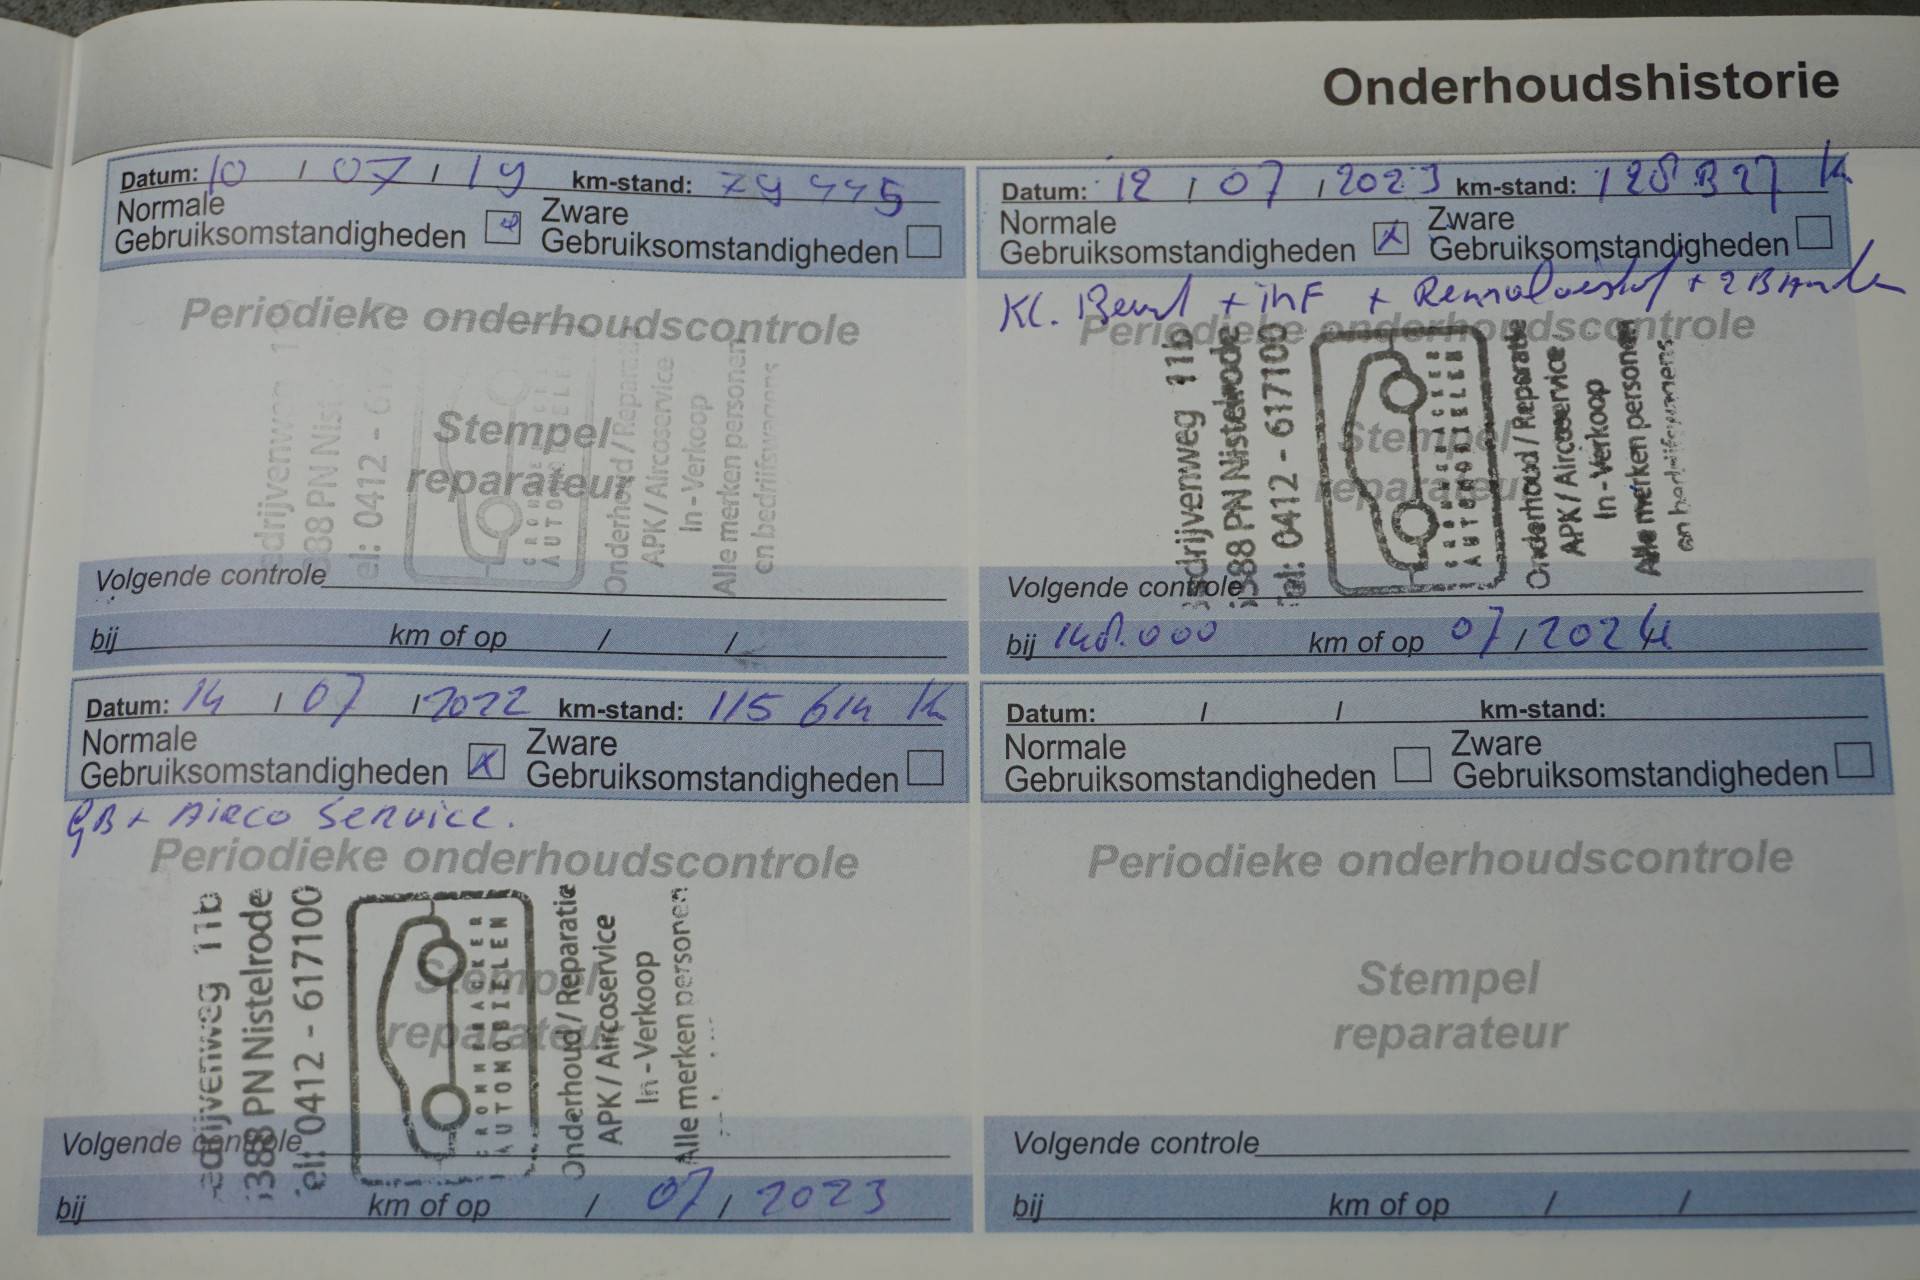 Onderhoudshistorie
Datum: 10 / 07 / 19 km-stand: 79 445
Normale Gebruiksomstandigheden Zware Gebruiksomstandigheden
Periodieke onderhoudscontrole
Stempel
reparateur
drijvenweg 1
388 PN Nist
el: 0412 - 61
AUTOMOBIELE
Onderhoud / Reparatie
APK / Aircoservice
In - Verkoop
Alle merken personen
en bedrijfswagens
Volgende controle
bij km of op / /
Datum: 12 / 07 / 2023 km-stand: 128 327 K
Normale Gebruiksomstandigheden Zware Gebruiksomstandigheden
Kl. Beurt + inF + Remvloeistof + 2 Banden
Periodieke onderhoudscontrole
Stempel
reparateur
edrijvenweg 11b
5388 PN Nistelrode
Tel: 0412 - 617100
AUTOMOBIELEN
Onderhoud / Reparatie
APK / Aircoservice
In - Verkoop
Alle merken personen
en bedrijfswagens
Volgende controle
bij 148.000 km of op 07 / 2024
Datum: 14 / 07 / 2022 km-stand: 115 614 K
Normale Gebruiksomstandigheden Zware Gebruiksomstandigheden
GB + Airco Service.
Periodieke onderhoudscontrole
Stempel
reparateur
edrijvenweg 11b
388 PN Nistelrode
el: 0412 - 617100
CROMMENACKER
AUTOMOBIELEN
Onderhoud / Reparatie
APK / Aircoservice
In - Verkoop
Alle merken personen
Volgende controle
bij km of op / 07 / 2023
Datum: / / km-stand:
Normale Gebruiksomstandigheden Zware Gebruiksomstandigheden
Periodieke onderhoudscontrole
Stempel
reparateur
Volgende controle
bij km of op / /